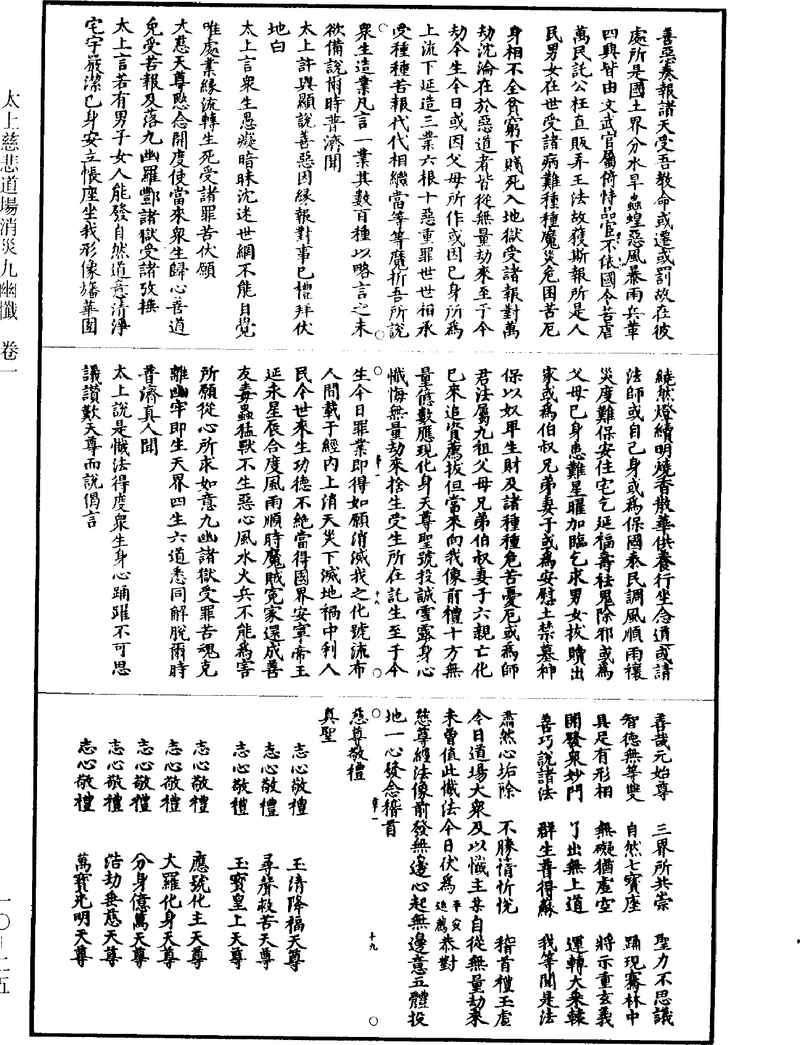 善惡奏報諸天受吾敎命或遷或罰故在彼
處所是國土界分水旱蟲蝗惡風暴雨兵革
四興皆由文武官屬倚恃品官不依國令苦虐
萬民託公枉直販弄王法故獲斯報所是人
民男女在世受諸病難種種魔災危困苦厄
身相不全貧窮下賤死入地獄受諸報對萬
劫沈淪在於惡道者皆從無量劫來至于今
劫今生今日或因父母所作或因已身所爲
上流下延造三業六根十惡重罪世世相承
受種種苦報代代相繼當等等魔折吾所說
衆生造業凡言一業其數百種以略言之未
欲備說爾時普濟聞
太上許與顯說善惡因緣報對事已禮拜伏
地白
太上言衆生愚癡暗昧沈迷世網不能自覺
唯處業緣流轉生死受諸罪苦伏願
大慈天尊愍念開度使當來衆生歸心善道
免受苦報及落九幽羅酆諸獄受諸攷撫
太上言若有男子女人能發自然道意清淨
宅宇嚴潔已身安立帳座坐我形像旛華圍
繞然燈續明燒香散華供養行坐念道或請
法師或自己身或爲保國泰民調風順雨禳
災度難保安住宅乞延福壽祛鬼除邪或爲
父母已身患難星曜加臨乞求男女拔贖出
家或爲伯叔兄弟妻子或爲安慰土禁墓神
保以奴畢生財及諸種種危苦憂厄或爲師
君法屬九祖父母兄弟伯叔妻子六親亡化
已來追資薦拔但當來向我像前禮十方無
量億數應現化身天尊聖號投誠雪露身心
懺悔無量劫來捨生受生所在託生至于今
生今日罪業即得如願消滅我之化號流布
人間載于經內上消天災下滅地禍中利人
民今世來生功德不絕當得國界安寧帝王
延未星辰合度風雨順時魔賊冤家還成善
友毒蟲猛獸不生惡心風水火兵不能爲害
所願從心所求如意九幽諸獄受罪苦魂克
離幽牢即生天界四生六道悉同解脫爾時
普濟真人聞
太上說是懺法得度衆生身心踊躍不可思
議讚歎天尊而說偈言
善哉元始尊　三界所共崇　聖力不思議
智德無等雙　自然七寶座　踊現騫林中
具足有形相　無礙猶虛空　將示重玄義
開發衆妙門　了出無上道　運轉大乘轅
善巧說諸法　群生普得蘇　我等聞是法
肅然心垢除　不勝情忻悅　稽首禮玉虛
今日道場大衆及以懺主某自從無量劫來
未曾值此懺法今日伏爲平安追薦恭對
慈尊經法像前發無邊心起無邊意五體投
地一心發念稽首
慈尊敬禮
真聖
志心敬禮　玉清降福天尊
志心敬禮　尋聲救苦天尊
志心敬禮　玉寶皇上天尊
志心敬禮　應號化主天尊
志心敬禮　大羅化身天尊
志心敬禮　分身億萬天尊
志心敬禮　浩劫垂慈天尊
志心敬禮　萬寶光明天尊
十八
十九
太上慈悲道場消災九幽懺　卷一
一〇－二五